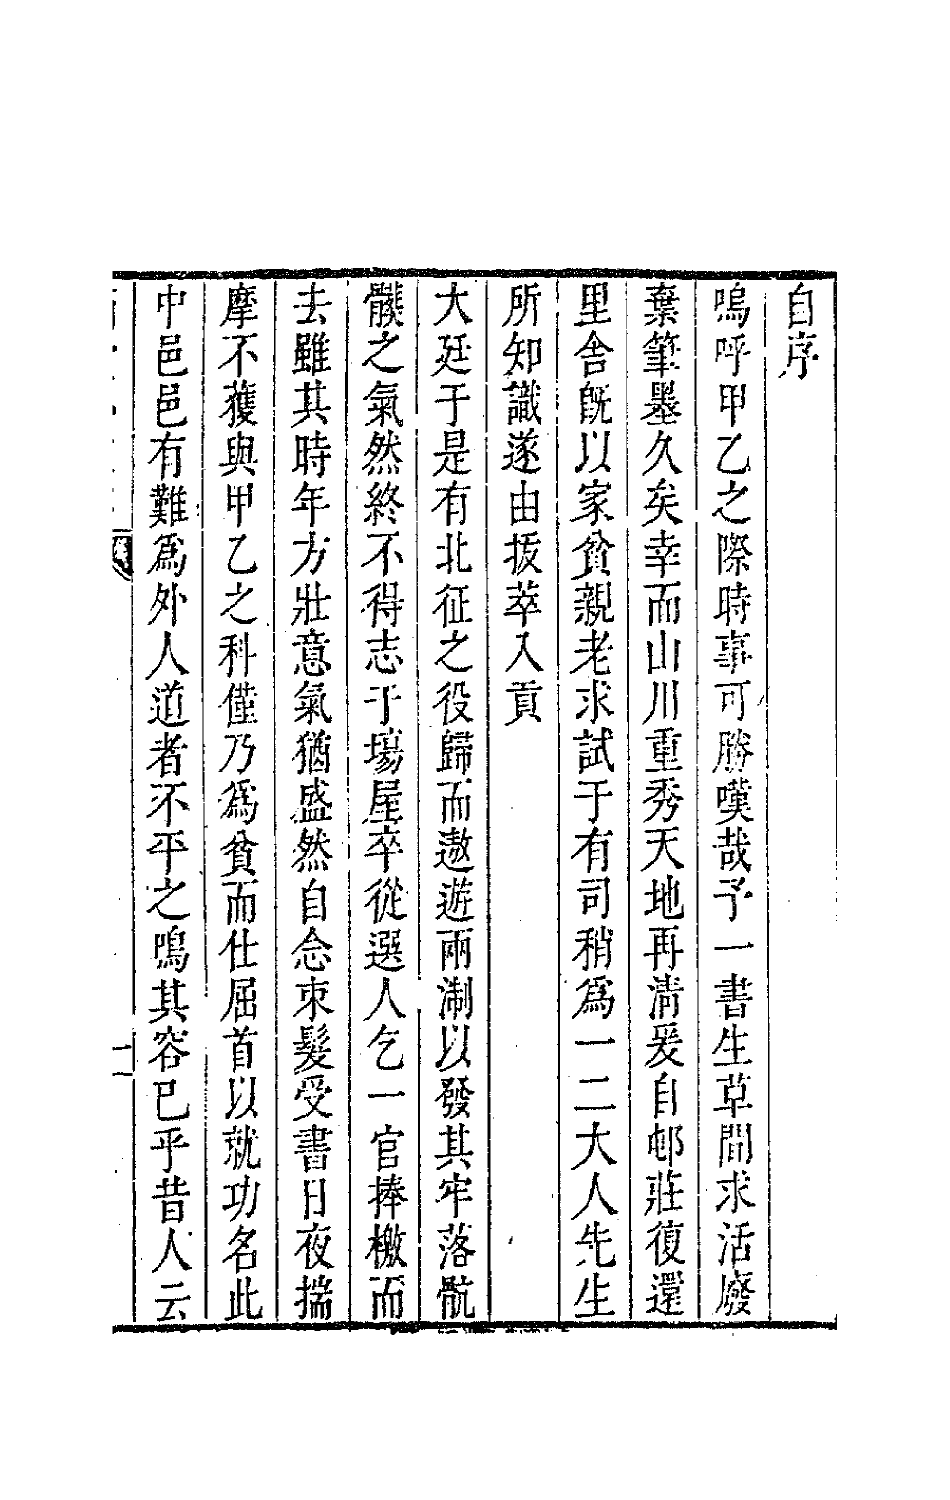 自序
嗚呼甲乙之際時事可勝嘆哉予一書生草間求活廢
棄筆墨久矣幸而山川重秀天地再淸爰自邨莊復還
里舍旣以家貧親老求試于有司稍爲一二大人先生
所知識遂由拔萃入貢
大廷于是有北征之役歸而遨遊兩淛以發其牢落骯
髒之氣然終不得志于塲屋卒從選人乞一官捧檄而
去雖其時年方壯意氣猶盛然自念束髮受書日夜揣
摩不獲與甲乙之科僅乃爲貧而仕屈首以就功名此
中邑邑有難爲外人道者不平之鳴其容已乎昔人云